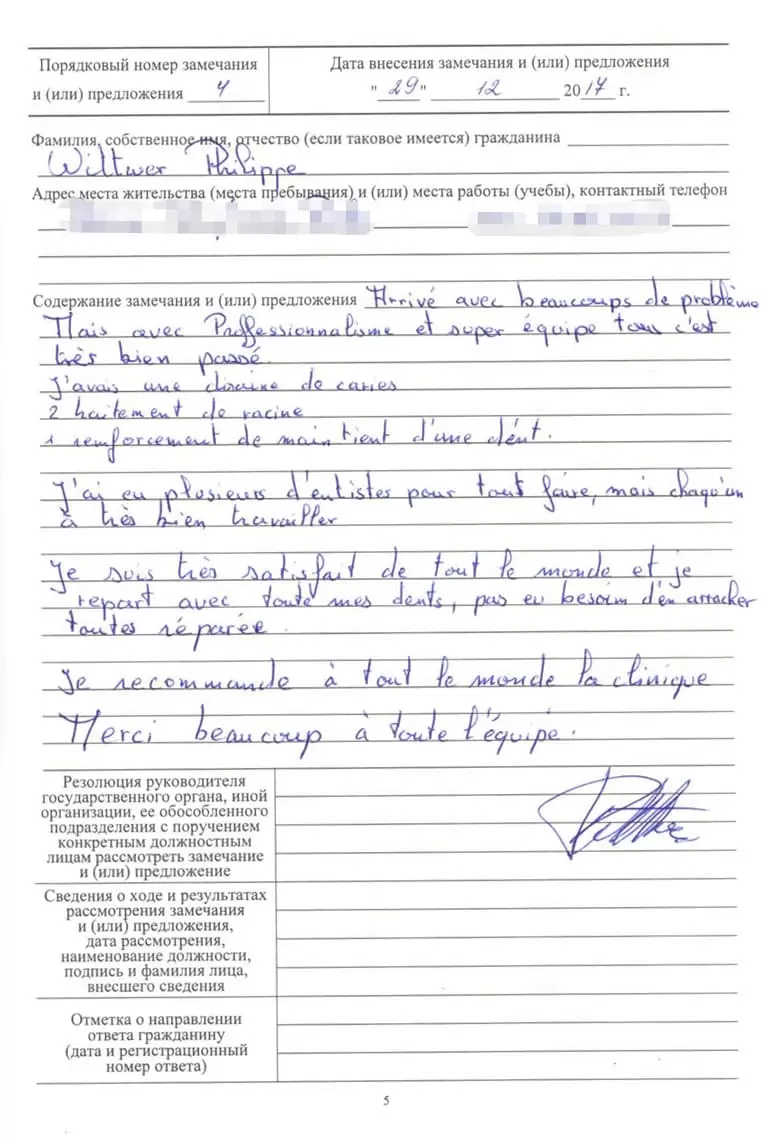 Порядковый номер замечания
и (или) предложения 4
Дата внесения замечания и (или) предложения
" 29 " 12 2017 г.
Фамилия, собственное имя, отчество (если таковое имеется) гражданина
Wittwer Philippe
Адрес места жительства (места пребывания) и (или) места работы (учебы), контактный телефон
Содержание замечания и (или) предложения Arrivé avec beaucoups de problème
Mais avec Proffessionnalisme et super équipe tous c'est
très bien passé.
J'avais une dizaine de caries
2 traitement de racine
1 remforcement de maintient d'une dént.
J'ai eu plusieurs d'entistes pour tout faire, mais chaqu'un
à très bien travailler
Je suis très satisfait de tout le monde et je
repart avec toute mes dents, pas eu besoim d'en arracher
toutes réparée.
Je recommande à tout le monde la clinique
Merci beaucoup à toute l'équipe.
Резолюция руководителя
государственного органа, иной
организации, ее обособленного
подразделения с поручением
конкретным должностным
лицам рассмотреть замечание
и (или) предложение
Сведения о ходе и результатах
рассмотрения замечания
и (или) предложения,
дата рассмотрения,
наименование должности,
подпись и фамилия лица,
внесшего сведения
Отметка о направлении
ответа гражданину
(дата и регистрационный
номер ответа)
5